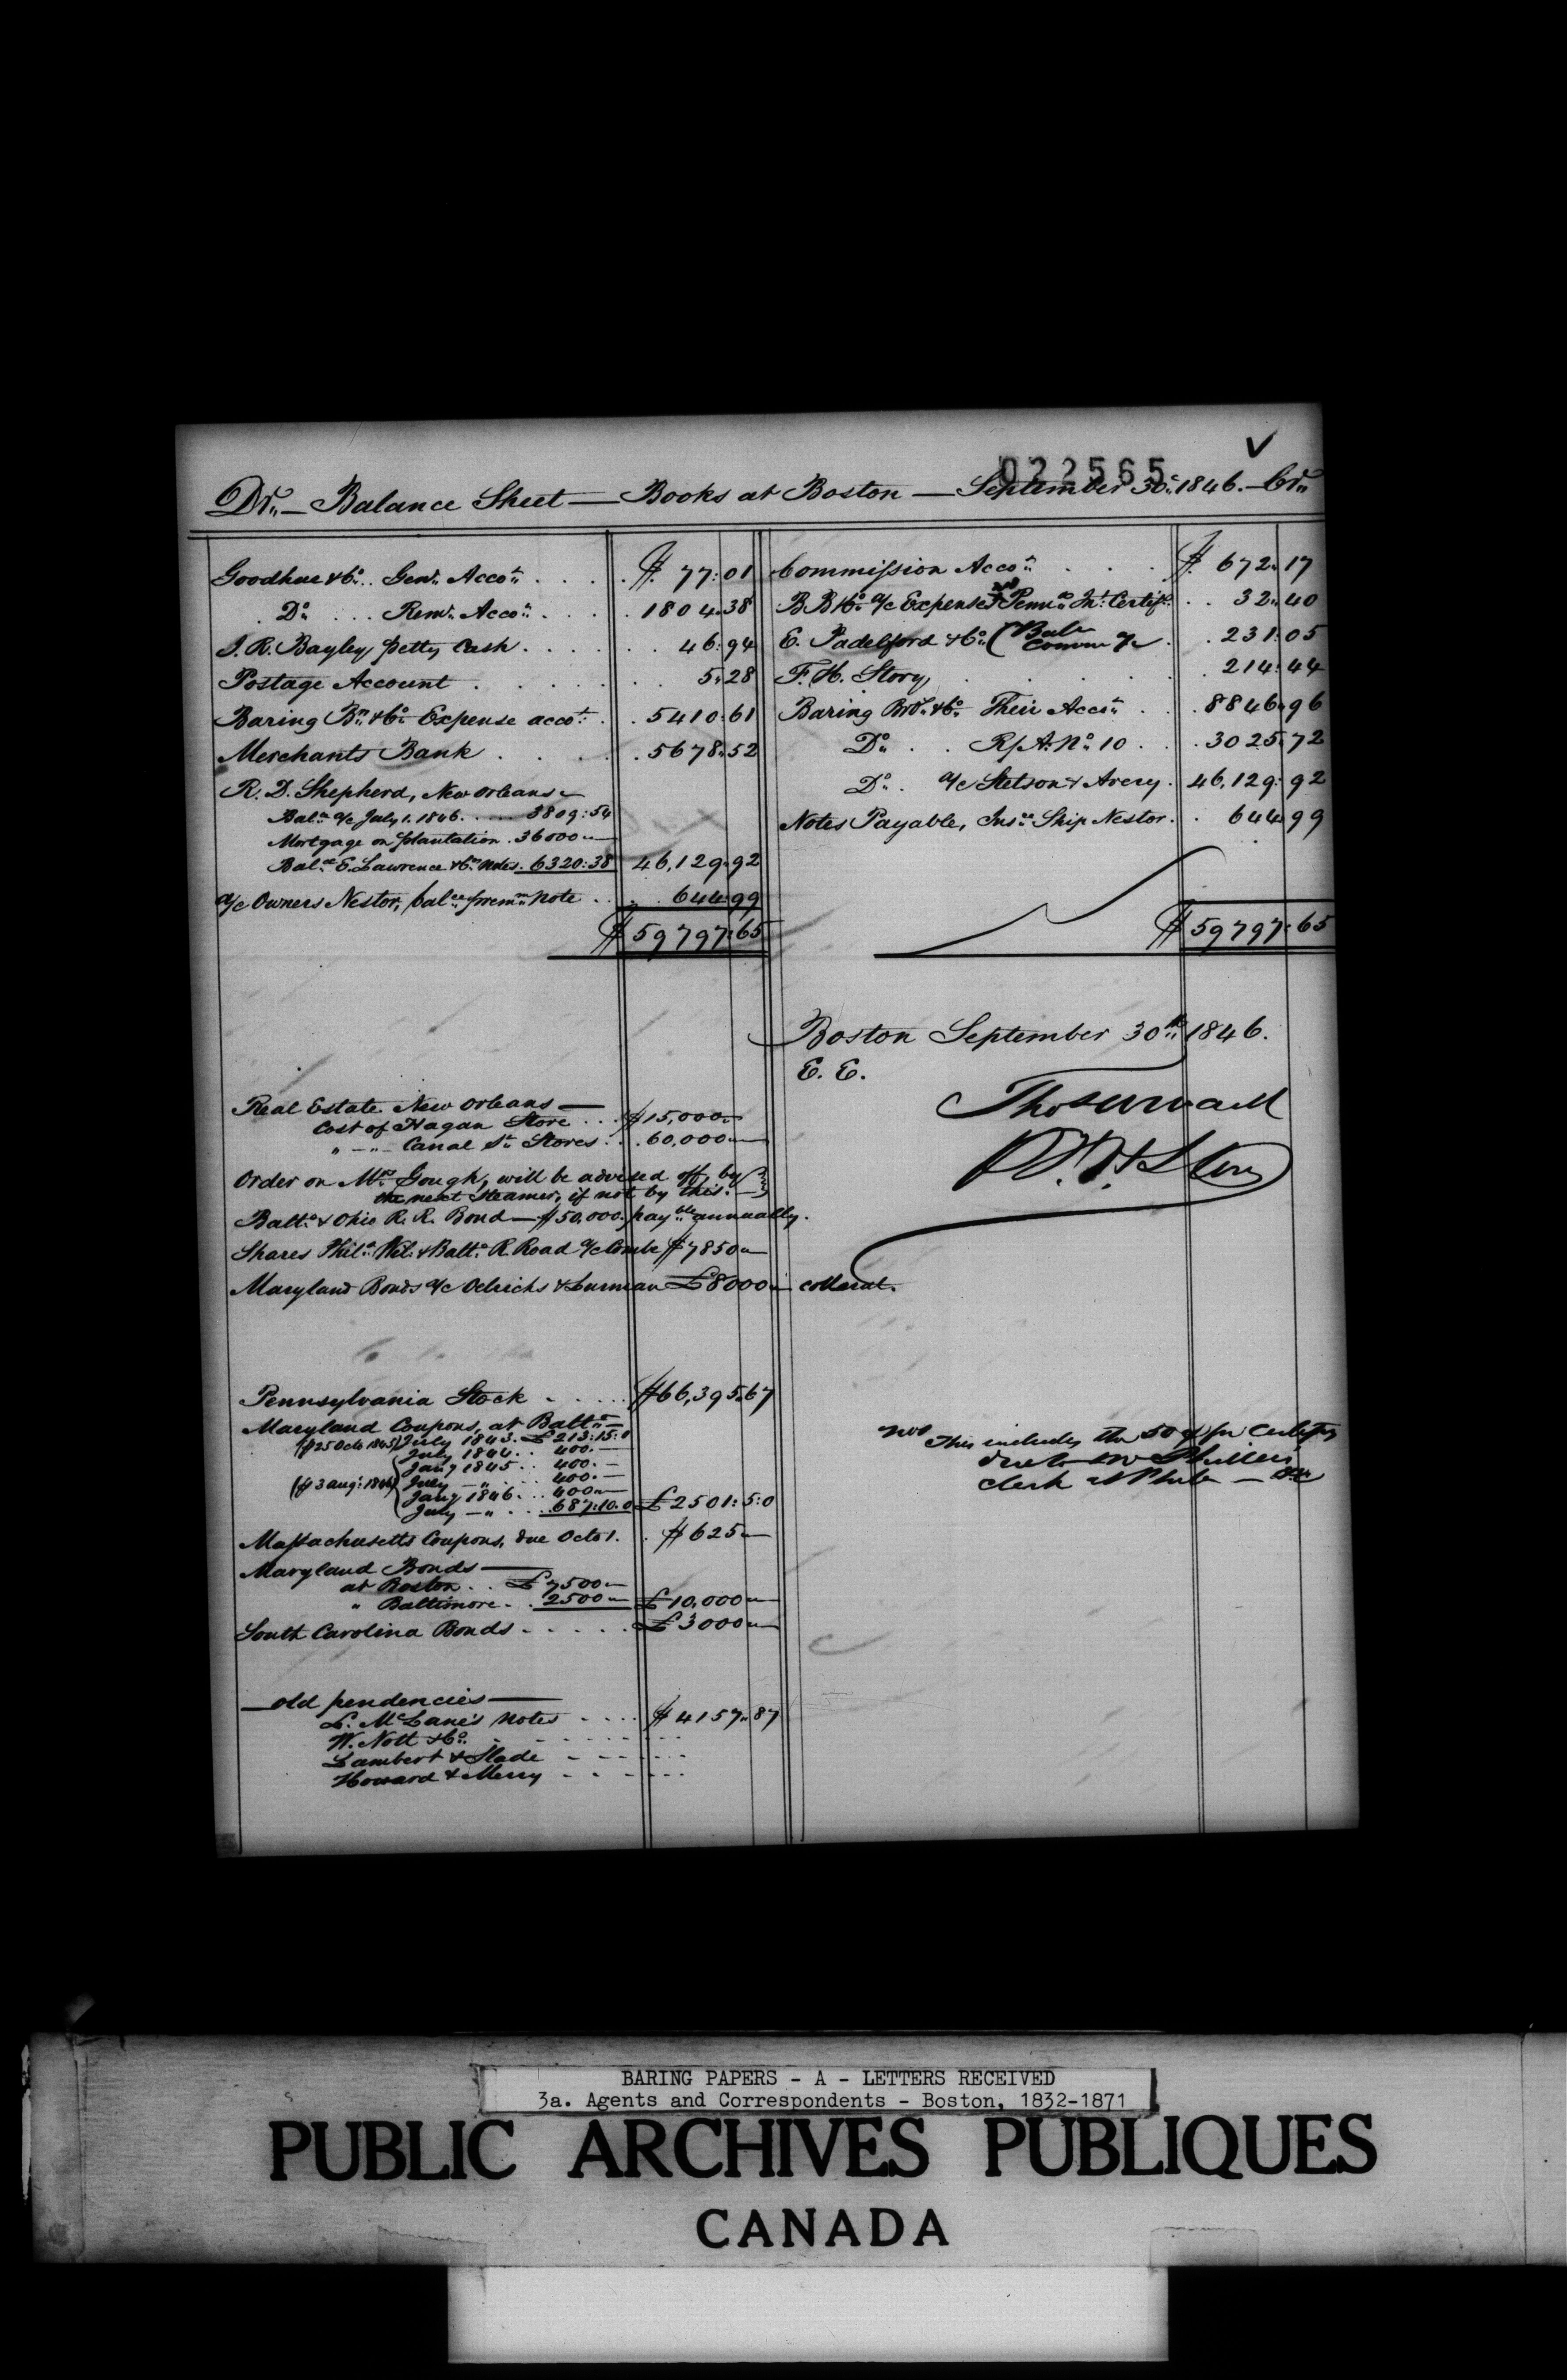 022565
Dr. — Balance Sheet — Books at Boston — September 30. 1846. — Cr.
Goodhue & Co. Genl. Accot. . . . $ 77:01
Do. . . . Remt. Accot. . . . 1804.38
J. R. Bayley petty Cash . . . . 46:94
Postage Account . . . . . 5:28
Baring Brs. & Co. Expense accot. . 5410:61
Merchants Bank . . . . 5678:52
R. D. Shepherd, New Orleans
Balce. a/c July 1. 1846. . . . 3809:54
Mortgage on plantation. 36000 —
Balce. E. Lawrence & Co. notes. 6320:38 46,129.92
a/c Owners Nestor, balce. premm. note . . . 644:99
$ 59797:65
Commission Accot. . . . $ 672.17
BB & Co. a/c Expenses Penna. Int. Certife. . . 32.40
E. Padelford & Co. (Balce Comm a/c . . 231:05
F. H. Story . . . . . 214:44
Baring Bros. & Co. Their Accot. . . 8846.96
Do. . . R/A. No. 10 . . . 3025.72
Do. . a/c Stetson & Avery . 46,129:92
Notes Payable, Insce. Ship Nestor. . 644.99
$ 59797:65
Boston September 30th. 1846.
E. E.
Real Estate New Orleans —
Cost of Hagan Store . . . $15,000 —
" — " — Canal St. Stores . . . 60,000 —
Order on Mr. Gough, will be advised off, by
the next steamer, if not by this. —
Balto. & Ohio R. R. Bond — $50,000. payble. annually.
Shares Phila. Wil. & Balto. R. Road a/c Combe $7850 —
Maryland Bonds a/c Oelrichs & Lurman £8000 — collerat.
Pennsylvania Stock . . . . . $66,395.67
Maryland Coupons, at Balto. —
(p 25 Octo 1845) July 1843. £213:15:0
July 1844. . . 400. —
Jany 1845 . . 400. —
(p 3 Aug: 1846) July — " . . 400. —
Jany 1846. . . 400 —
July — " . . . 687:10.0 £2501:5:0
Massachusetts Coupons, due Octo 1. . $625 —
Maryland Bonds —
at Boston . . £7500 —
" Baltimore . . 2500 — £10,000 —
South Carolina Bonds . . . . . £3000 —
— old pendencies —
L. McLane's Notes . . . . $4157.87
W. Nott & Co. . . . . . .
Lambert & Slade . . . . .
Howard & Merry . . . . .
This includes the 50
due
clerk at
BARING PAPERS - A - LETTERS RECEIVED
3a. Agents and Correspondents - Boston, 1832-1871
PUBLIC ARCHIVES PUBLIQUES
CANADA